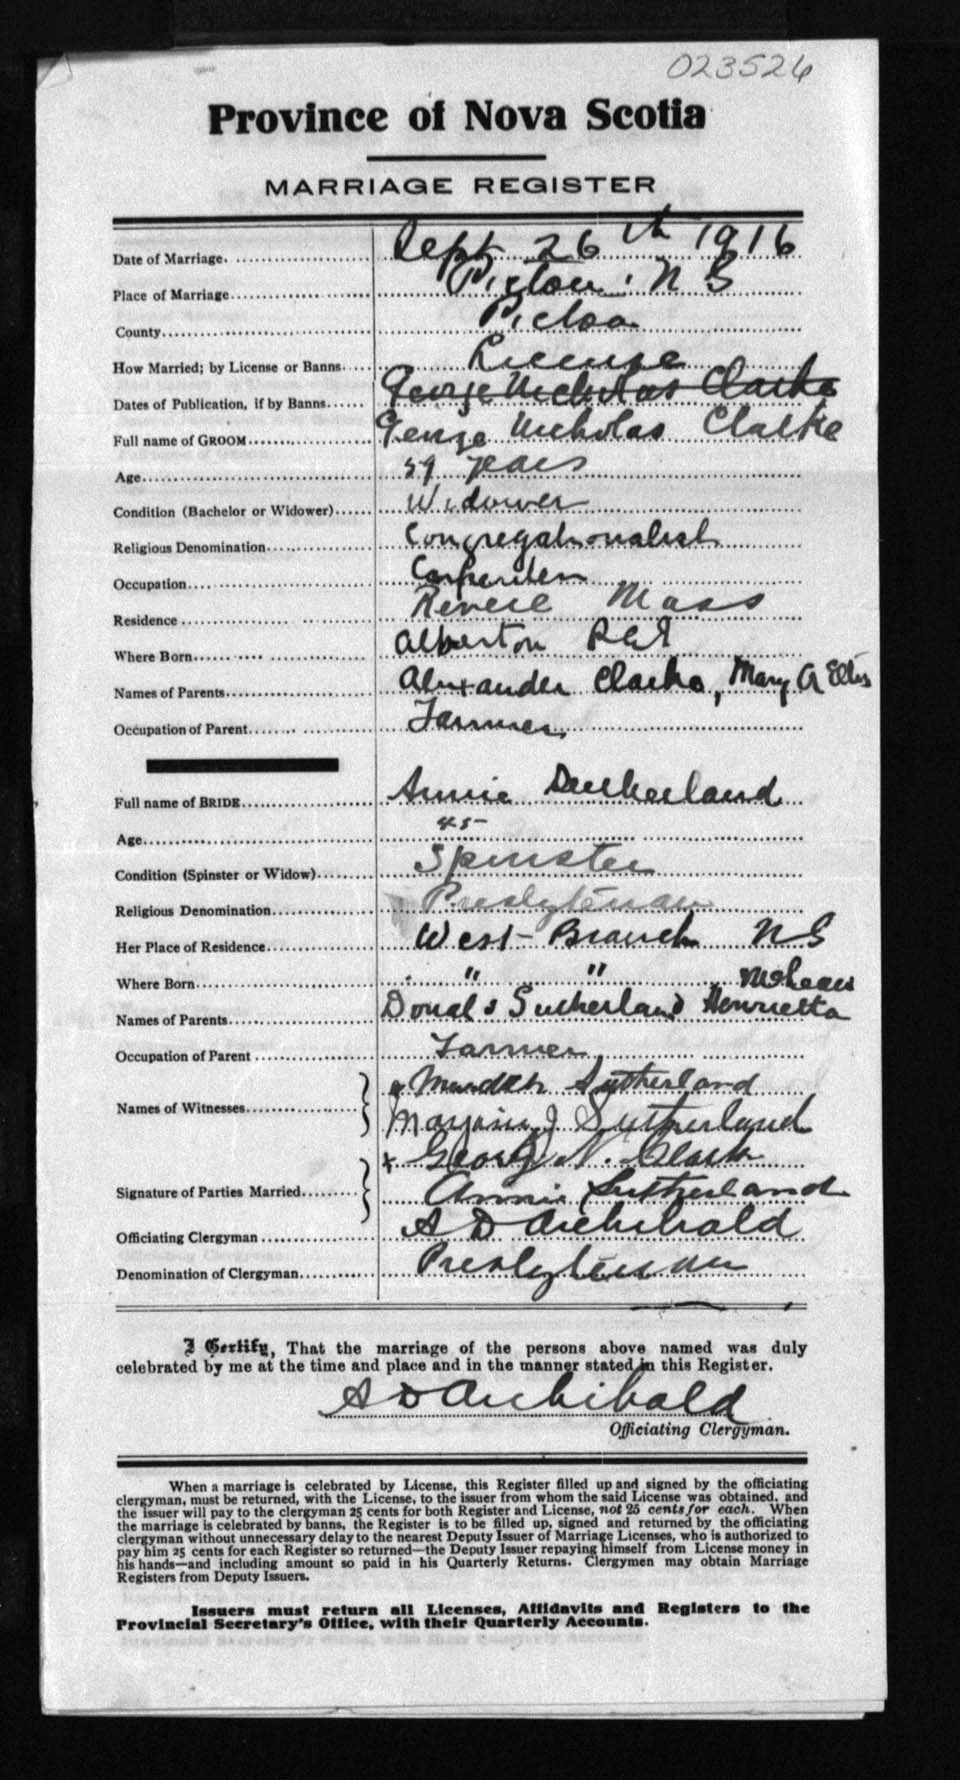 023526
Province of Nova Scotia
MARRIAGE REGISTER
Date of Marriage. Sept 26th 1916
Place of Marriage Pictou N S
County Pictou
How Married; by License or Banns License
Dates of Publication, if by Banns George Nicholas Clarke
Full name of GROOM George Nicholas Clarke
Age 59 years
Condition (Bachelor or Widower) Widower
Religious Denomination Congregationalist
Occupation Carpenter
Residence Revere Mass
Where Born Alberton P E I
Names of Parents Alexander Clarke, Mary A Ellis
Occupation of Parent Farmer
Full name of BRIDE Annie Sutherland
Age 45
Condition (Spinster or Widow) Spinster
Religious Denomination Presbyterian
Her Place of Residence West Branch N S
Where Born " " "
McLean
Names of Parents Donald Sutherland Henrietta
Occupation of Parent Farmer
Names of Witnesses x Sutherland
J Sutherland
Signature of Parties Married x George N. Clark
Annie Sutherland
Officiating Clergyman A D Archibald
Denomination of Clergyman Presbyterian
I Certify, That the marriage of the persons above named was duly
celebrated by me at the time and place and in the manner stated in this Register.
A D Archibald
Officiating Clergyman.
When a marriage is celebrated by License, this Register filled up and signed by the officiating
clergyman, must be returned, with the License, to the issuer from whom the said License was obtained, and
the issuer will pay to the clergyman 25 cents for both Register and License, not 25 cents for each. When
the marriage is celebrated by banns, the Register is to be filled up, signed and returned by the officiating
clergyman without unnecessary delay to the nearest Deputy Issuer of Marriage Licenses, who is authorized to
pay him 25 cents for each Register so returned—the Deputy Issuer repaying himself from License money in
his hands—and including amount so paid in his Quarterly Returns. Clergymen may obtain Marriage
Registers from Deputy Issuers.
Issuers must return all Licenses, Affidavits and Registers to the
Provincial Secretary's Office, with their Quarterly Accounts.